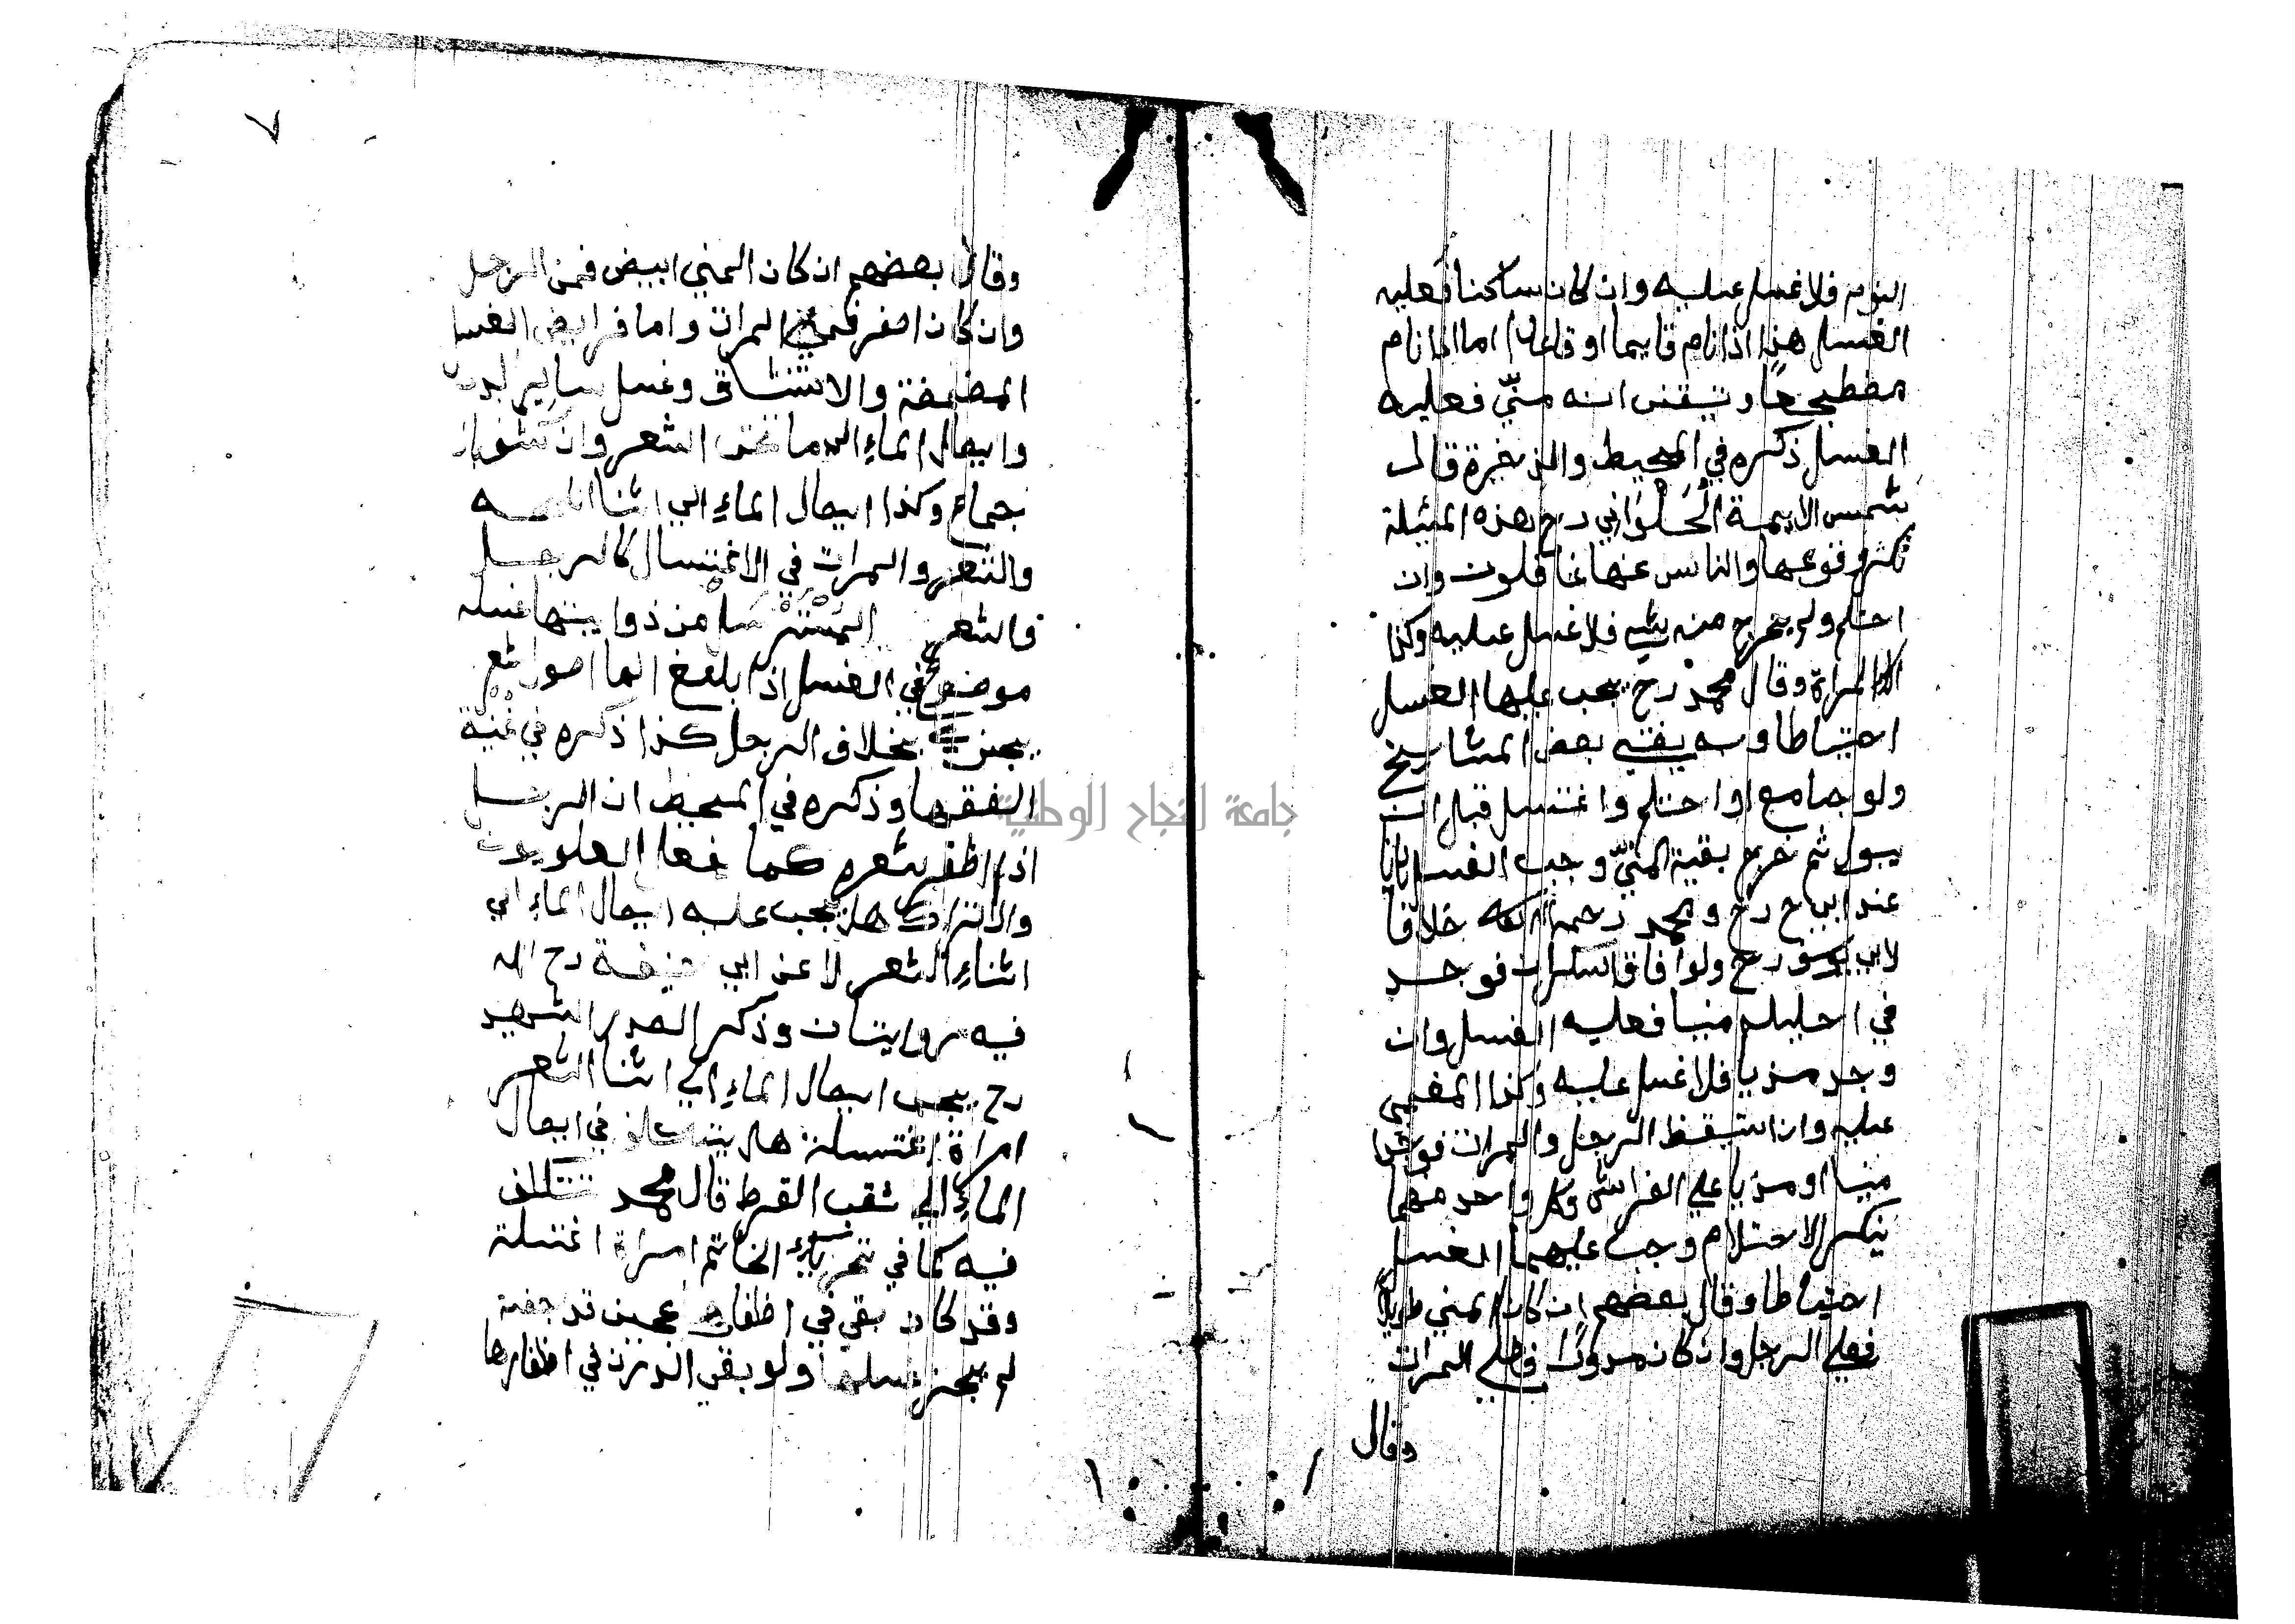 النوم فلا غسل عليه وان كان ساكنا فعليه
الغسل هذا اذا نام قايما او قاعدا اما اذا نام
مضطجعا وتيقن انه منيّ فعليه
الغسل ذكره في المحيط والذخيرة قال
شمس الايمة الحَلْوَاني رح هذه المسئلة
تكثر وقوعها والناس عنها غافلون وان
احتلم ولم يخرج منه شي فلا غسل عليه وكذا
المراة وقال محمد رح يجب عليها الغسل
احتياطا وبه يفتي بعض المشايخ
ولو جامع او احتلم واغتسل قبل ان
يبول ثم خرج بقية المنيّ وجب الغسل ثانيا
عند ابي ح رح ومحمد رحمة الله خلافا
لابي يوسف رح ولو افاق السكران فوجد
في احليله منيا فعليه الغسل وان
وجد مذيا فلا غسل عليه وكذا المغمى
عليه وان استيقظ الرجل والمرات فوجدا
منيا او مذيا علي الفراش وكل واحد منهما
ينكر الاحتلام وجب عليهما الغسل
احتياطا وقال بعضهم ان كان المني طويلا
فعلي الرجل وان كان مدورا فعلي المرات
وقال
وقال بعضهم ان كان المني ابيض فمن الرجل
وان كان اصفر فمن المرات واما فرايض الغسل
المضمضة والاستنشاق وغسل ساير البدن
وايصال الماء الى ما تحت الشعر وان
بجماع وكذا ايصال الماء الي اثنا
والشعر والمرات في الاغتسال كالرجل
والشعر المسترسل من ذوايبها غسله
موضوع في الغسل اذا بلغ الما اصول شع
يجز بخلاف الرجل كذا ذكره في غنية
الفقها وذكره في المحيط ان الرجل
اذا اظفر شعره كما فعل العلويون
والاتراك هل يجب عليه ايصال الماء الي
اثناء الشعر لا عن ابي حنيفة رح الله
فيه روايتان وذكر الصدر الشهيد
رح يجب ايصال الماء الي اثنا الشعر
امراة اغتسلة هل تتكلف في ايصال
الماء الي ثقب القرط قال محمد تتكلف
فيه كما في تحريك الخاتم امراة اغتسلة
وقد كان بقي في اظفارها عجين قد جفت
لم يجز غسلها ولو بقي الدرن في اظفارها
جامعة النجاح الوطنية